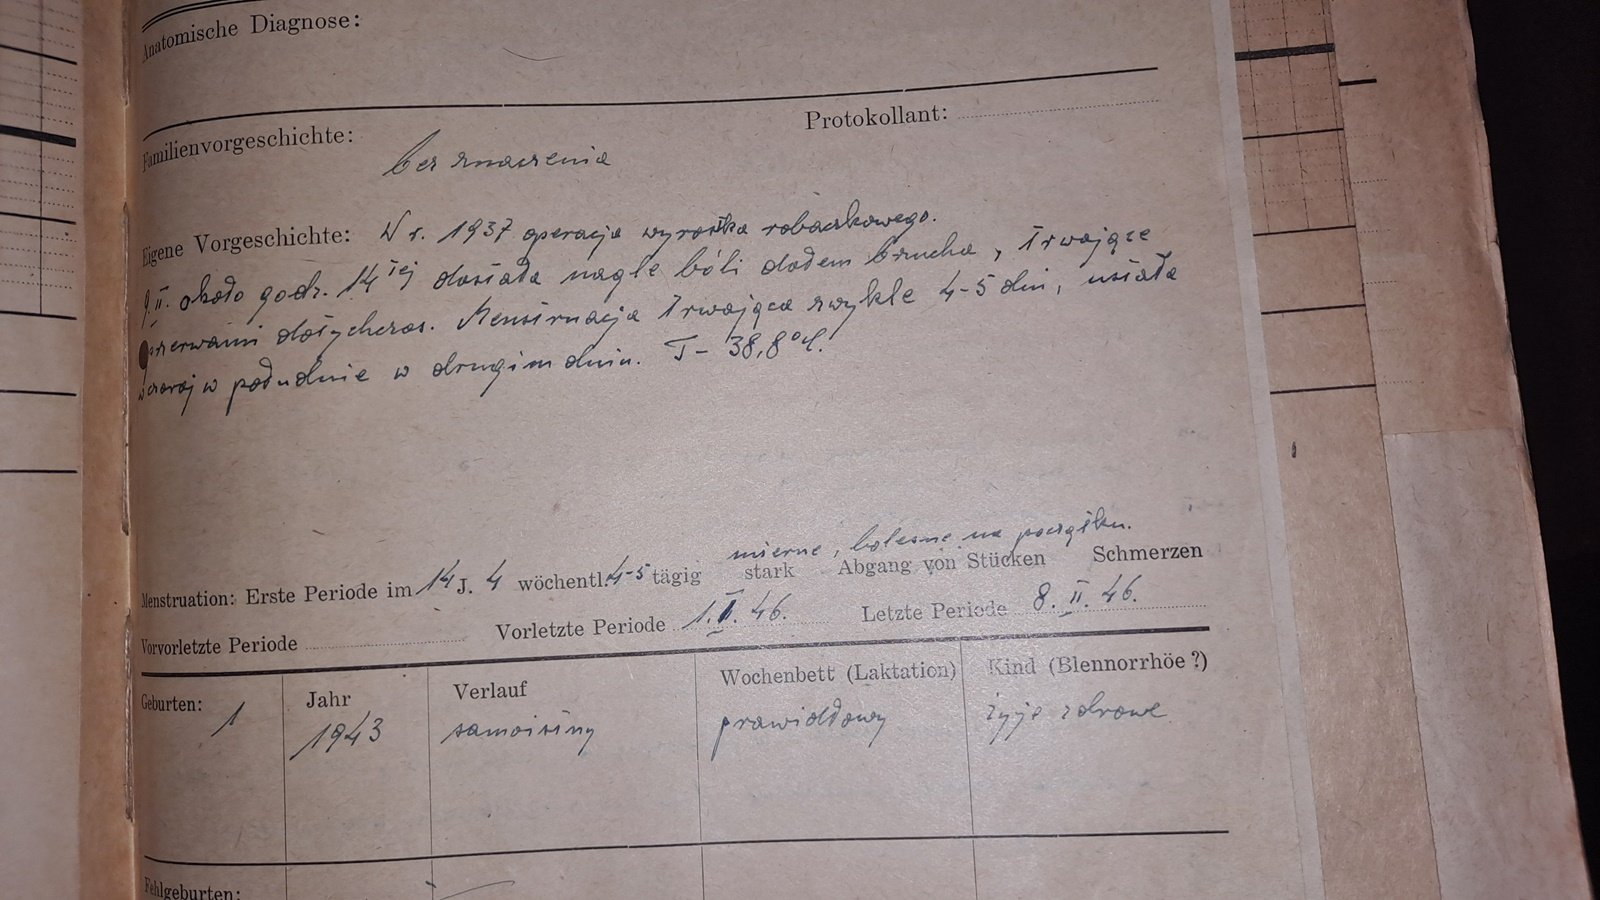 Anatomische Diagnose:
Protokollant:
Familienvorgeschichte: bez znaczenia
Eigene Vorgeschichte: W r. 1937 operacja wyrostka robaczkowego.
9.II. około godz. 14 tej dostała nagle bóli dołem brzucha, trwające
przerwami dotychczas. Menstruacja trwająca zwykle 4-5 dni, ustała
wczoraj w południe w drugim dniu. T- 38,8°C.
mierne, bolesne na początku.
Menstruation: Erste Periode im 14 J. 4 wöchentl. 4-5 tägig stark Abgang von Stücken Schmerzen
Vorvorletzte Periode Vorletzte Periode 1.I. 46. Letzte Periode 8. II. 46.
Geburten: Jahr Verlauf Wochenbett (Laktation) Kind (Blennorrhöe?)
1 1943 samoistny prawidłowy żyje zdrowe
Fehlgeburten: